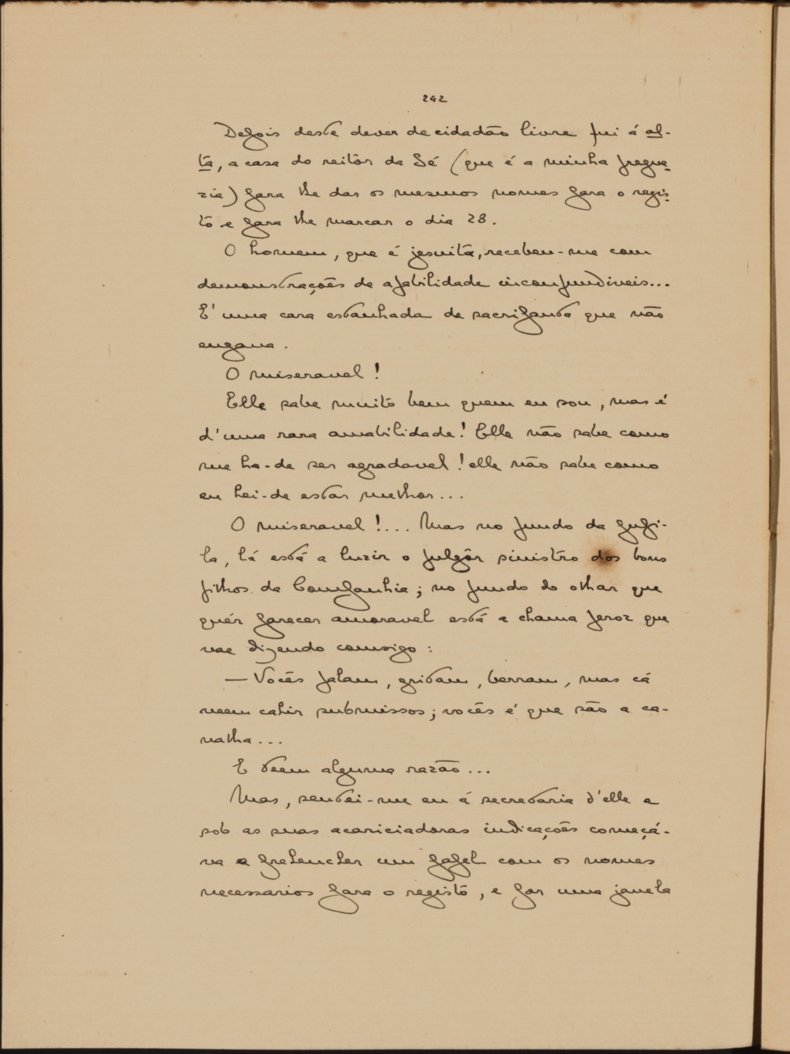 242
Depois deste dever de cidadão livre fui á al-
ta, a casa do reitôr da Sé (que é a minha fregue-
zia) para lhe das os mesmos nomes para o regis-
to e para lhe marcar o dia 28.
O homem, que é jesuita, recebeu-me com
demonstrações de afabilidade inconfundiveis...
E' uma cara estanhada de sacripanta que não
engana.
O miseravel!
Elle sabe muito bem quem eu sou, mas é
d'uma rara amabilidade! Elle não sabe como
me ha-de ser agradavel! elle não sabe como
eu hei-de estar melhor...
O miseravel!... Mas no fundo da pupi-
la, lá está a luzir o fulgôr sinistro dos bons
filhos da Companhia; no fundo do olhar que
quér parecer amoravel está a chama feroz que
vae dizendo comsigo:
— Vocês falam, gritam, berram, mas cá
veem cahir submissos; vocês é que são a ca-
nalha...
E teem alguma razão...
Mas, sentei-me eu á secretaria d'elle e
sob as suas acariciadoras indicações começá-
va a prehencher um papel com os nomes
necessarios para o registo, e por uma janela